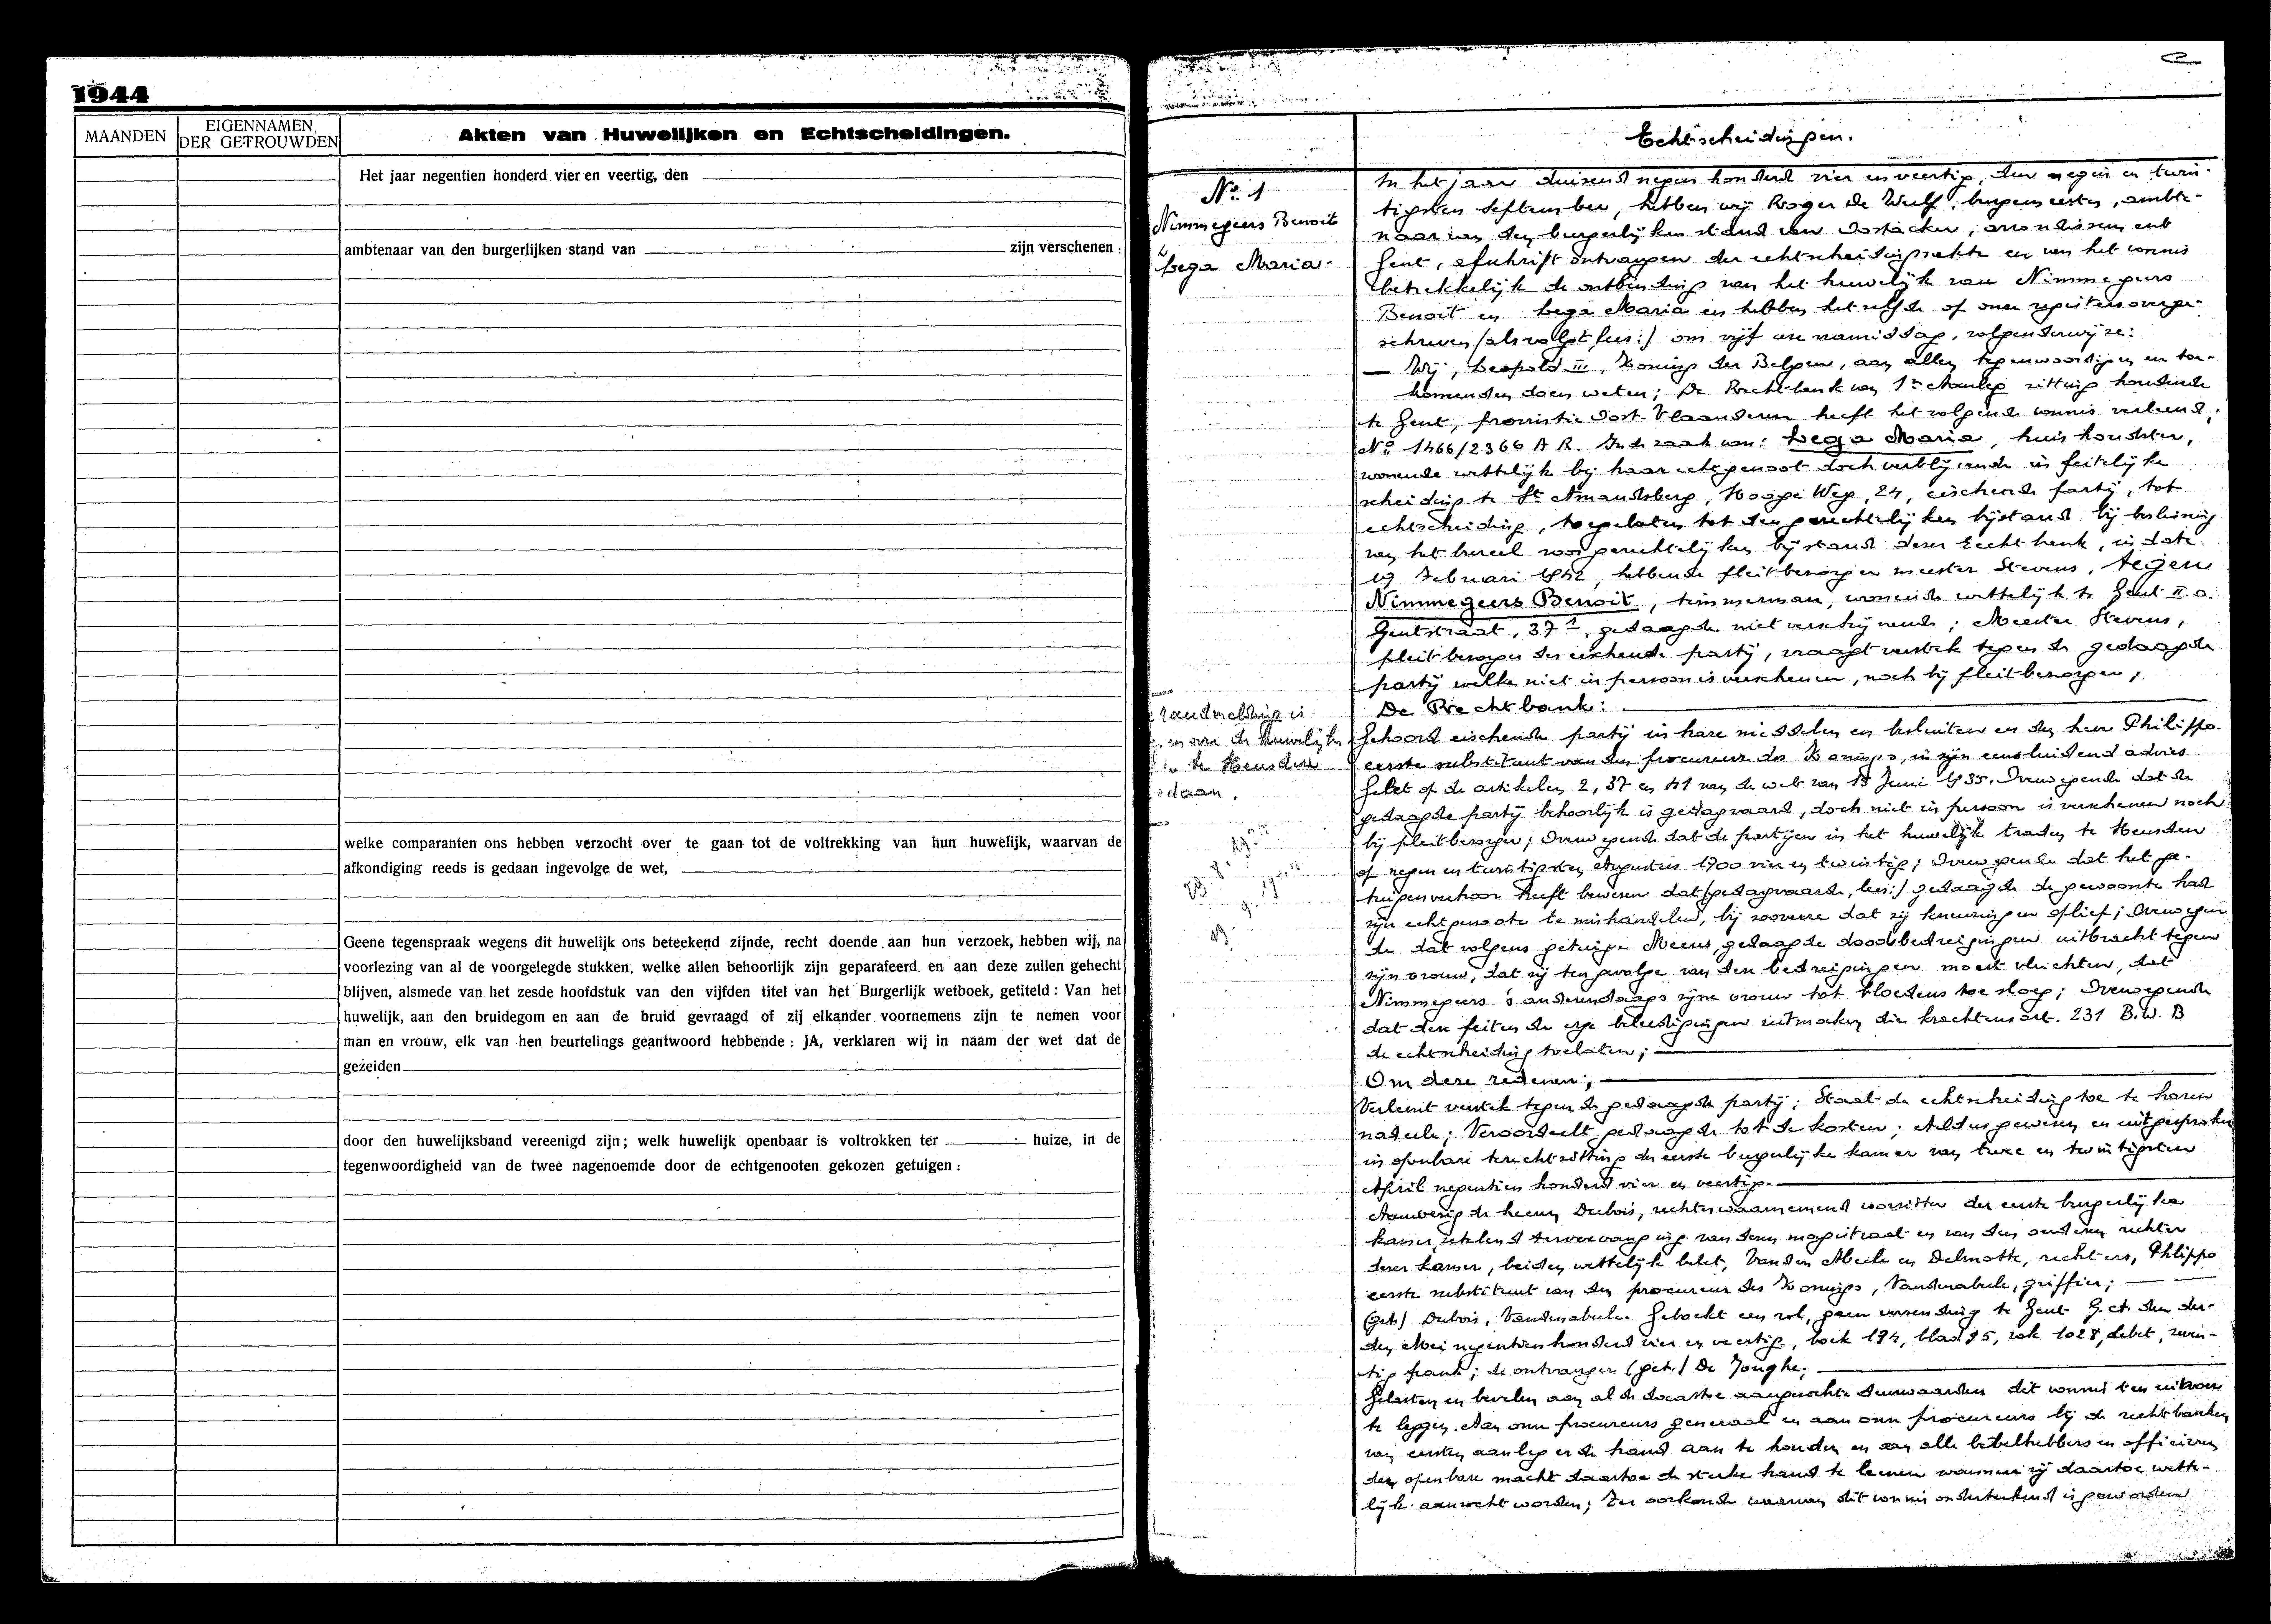 1944
MAANDEN
EIGENNAMEN
DER GETROUWDEN
Akten van Huwelijken en Echtscheidingen.
Het jaar negentien honderd vier en veertig, den
ambtenaar van den burgerlijken stand van zijn verschenen :
welke comparanten ons hebben verzocht over te gaan tot de voltrekking van hun huwelijk, waarvan de
afkondiging reeds is gedaan ingevolge de wet,
Geene tegenspraak wegens dit huwelijk ons beteekend zijnde, recht doende aan hun verzoek, hebben wij, na
voorlezing van al de voorgelegde stukken, welke allen behoorlijk zijn geparafeerd en aan deze zullen gehecht
blijven, alsmede van het zesde hoofdstuk van den vijfden titel van het Burgerlijk wetboek, getiteld : Van het
huwelijk, aan den bruidegom en aan de bruid gevraagd of zij elkander voornemens zijn te nemen voor
man en vrouw, elk van hen beurtelings geantwoord hebbende : JA, verklaren wij in naam der wet dat de
gezeiden
door den huwelijksband vereenigd zijn; welk huwelijk openbaar is voltrokken ter huize, in de
tegenwoordigheid van de twee nagenoemde door de echtgenooten gekozen getuigen :
Echtscheidingen.
No. 1
Nimmegeers Benoit
&
Lega Maria.
randmelding is
huwelijks
te Heusden
daan.
In het jaar duizend negen honderd vier en veertig, den negen en twin-
tigsten September, hebben wij Roger De Wulf, burgemeester, ambte-
naar van den burgerlijken stand van Oostacker, arrondissement
Gent, afschrift ontvangen der echtscheidingsakte en van het vonnis
betrekkelijk de ontbinding van het huwelijk van Nimmegeers
Benoit en Lega Maria en hebben hetzelfde op onze registers overge-
schreven (als volgt, lees:) om vijf ure namiddag, volgenderwijze:
— Wij, Leopold III, Koning der Belgen, aan allen tegenwoordigen en toe-
komenden doen weten; De Rechtbank van 1n Aanleg zitting houdende
te Gent, provintie Oost-Vlaanderen heeft het volgende vonnis verleend;
No. 1466/2366 A R. In de zaak van: Lega Maria, huishoudster,
wonende wettelijk bij haar echtgenoot doch verblijvende in feitelijke
scheiding te St. Amandsberg, Hooge Weg, 24, eischende partij, tot
echtscheiding, toegelaten tot den gerechtelijken bijstand bij beslissing
van het bureel voor gerechtelijken bijstand dezer Rechtbank, in date
19 Februari 1942, hebbende pleitbezorger meester Stevens, tegen
Nimmegeers Benoit, timmerman, wonende wettelijk te Gent II.o.
Gentstraat, 37 1, gedaagde niet verschijnende; Meester Stevens,
pleitbezorger der eischende partij, vraagt verstek tegen de gedaagde
partij welke niet in persoon is verschenen, noch bij pleitbezorger;
De Rechtbank:
Gehoord eischende partij in hare middelen en besluiten en den heer Philippo
eerste substituut van den procureur des Konings, in zijn eensluidend advies
Gelet op de artikelen 2, 37 en 41 van de wet van 15 Juni 1935. Overwegende dat de
gedaagde partij behoorlijk is gedagvaard, doch niet in persoon is verschenen noch
bij pleitbezorger; Overwegende dat de partijen in het huwelijk traden te Heusden
op negen en twintigsten Augustus 1900 vier en twintig; Overwegende dat het ge-
tuigenverhoor heeft bewezen dat (gedagvaarde, lees:) gedaagde de gewoonte had
zijn echtgenoote te mishandelen, bij zooverre dat zij kneuzingen opliep; Overwegen
de dat volgens getuige Meeus, gedaagde doodsbedreigingen uitbracht tegen
zijn vrouw, dat zij ten gevolge van deze bedreigingen moest vluchten, dat
Nimmegeers 's anderendaags zijne vrouw tot bloedens toe sloeg; Overwegende
dat deze feiten de erge beleedigingen uitmaken die krachtens art. 231 B.W. B
de echtscheiding toelaten;
Om deze redenen;
Verleent verstek tegen de gedaagde partij; Staat de echtscheiding toe te haren
nadeele; Veroordeelt gedaagde tot de kosten; Aldus gewezen en uitgesproken
in openbare terechtzitting der eerste burgerlijke kamer van twee en twintigsten
April negentien honderd vier en veertig.
Aanwezig de heeren Dubois, rechter waarnemend voorzitter der eerste burgerlijke
kamer, zetelend ter vervanging van dezen magistraat en van den anderen rechter
dezer kamer, beiden wettelijk belet, Vanden Abeele en Delmotte, rechters, Philippo
eerste substituut van den procureur des Konings, Vandenabeele, griffier;
(get.) Dubois, Vandenabeele. Geboekt een rol, geen verzending te Gent G.A. den der-
den Mei negentien honderd vier en veertig, boek 194, blad 95, vak 1028, debet, twin-
tig frank; de ontvanger (get.) De Jonghe;
Gelasten en bevelen aan al de daartoe aangezochte deurwaarders dit vonnis ten uitvoer
te leggen. Aan onze procureurs generaal en aan onze procureurs bij de rechtbanken
van eersten aanleg er de hand aan te houden en aan alle bevelhebbers en officieren
der openbare macht daartoe de sterke hand te leenen wanneer zij daartoe wette-
lijk aanzocht worden; Ter oorkonde waarvan dit vonnis onderteekend is geworden